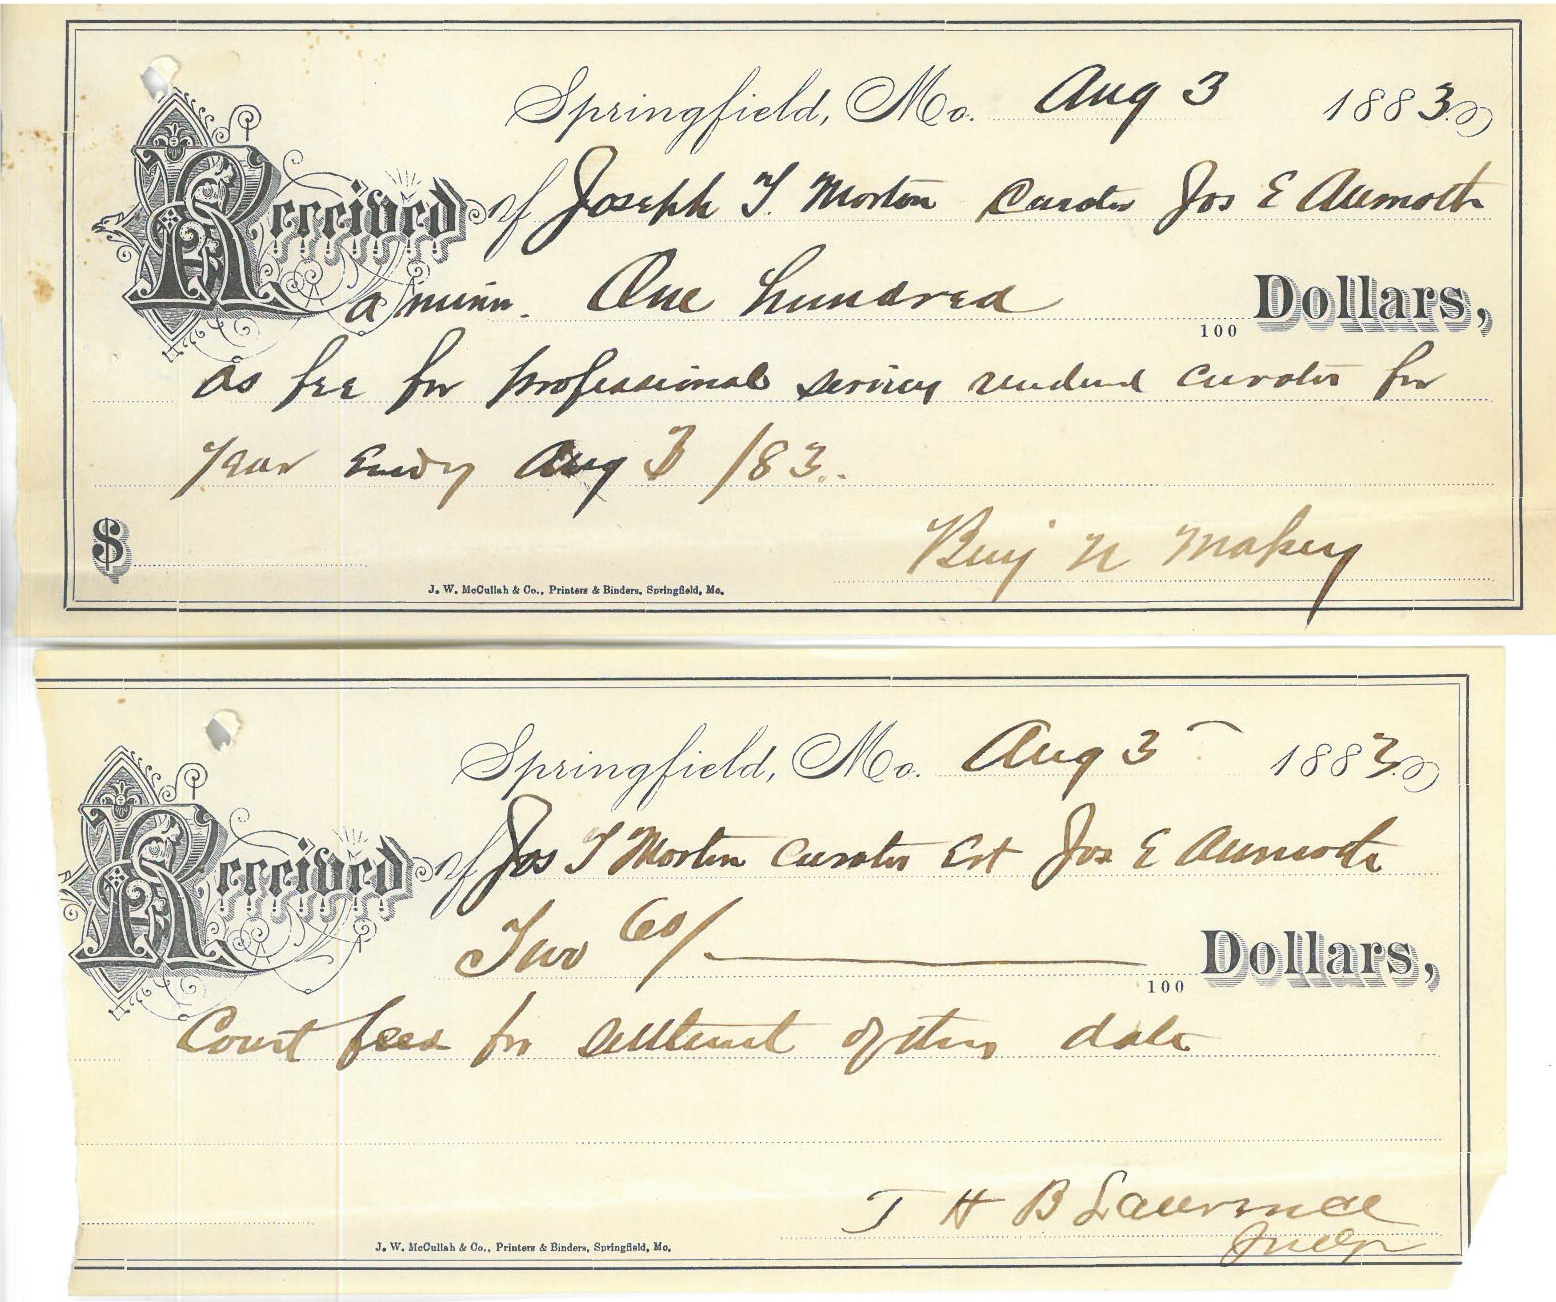 Springfield, Mo. Aug 3 1883
Received of Joseph T. Morton Curator Jos E
a minor. One hundred 100 Dollars,
as fee for professional services rendered curator for
year Endg Aug 3 /83.
$ Benj N
J. W. McCullah & Co., Printers & Binders, Springfield, Mo.
Springfield, Mo. Aug 3 1883
Received of Jos T Morton Curator Est Jos E
Two 60/ 100 Dollars,
Court fees for settlement of this date
T H B Lawrence
Judge
J. W. McCullah & Co., Printers & Binders, Springfield, Mo.